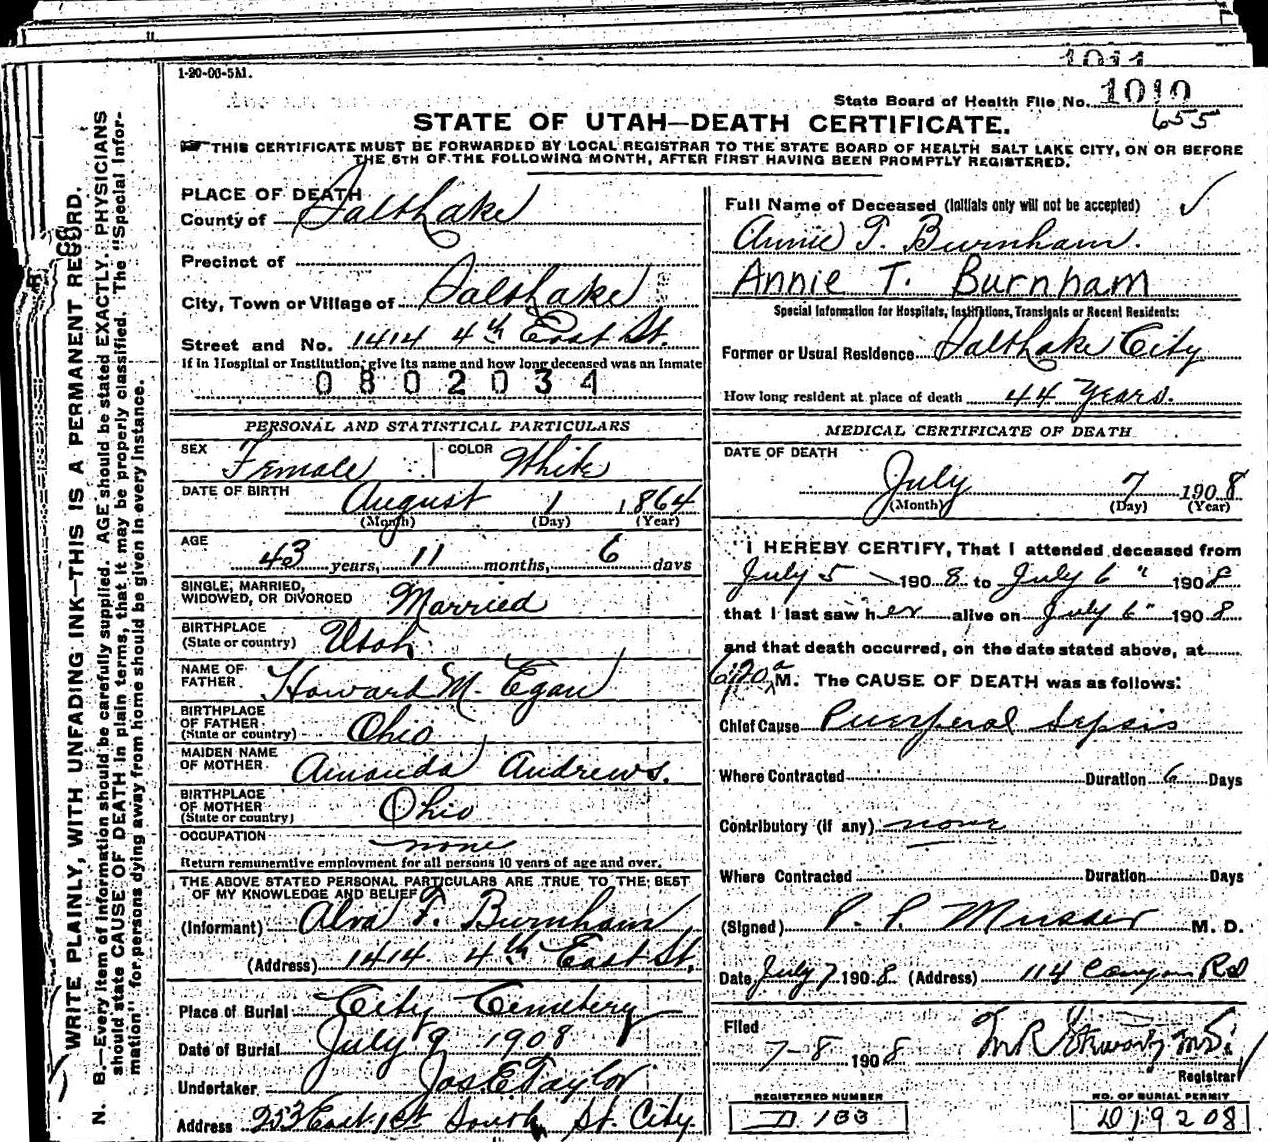 1011
1-20-06-5M.
State Board of Health File No. 1010
655
STATE OF UTAH—DEATH CERTIFICATE.
THIS CERTIFICATE MUST BE FORWARDED BY LOCAL REGISTRAR TO THE STATE BOARD OF HEALTH SALT LAKE CITY, ON OR BEFORE
THE 5TH OF THE FOLLOWING MONTH, AFTER FIRST HAVING BEEN PROMPTLY REGISTERED.
WRITE PLAINLY, WITH UNFADING INK—THIS IS A PERMANENT RECORD.
N. B.—Every item of information should be carefully supplied. AGE should be stated EXACTLY. PHYSICIANS
should state CAUSE OF DEATH in plain terms, that it may be properly classified. The "Special Infor-
mation" for persons dying away from home should be given in every instance.
PLACE OF DEATH
County of Salt Lake
Precinct of
City, Town or Village of Salt Lake
Street and No. 1414 4th East St.
If in Hospital or Institution, give its name and how long deceased was an Inmate
0802034
PERSONAL AND STATISTICAL PARTICULARS
SEX Female COLOR White
DATE OF BIRTH August 1 1864
(Month) (Day) (Year)
AGE
43 years, 11 months, 6 days
SINGLE, MARRIED,
WIDOWED, OR DIVORCED Married
BIRTHPLACE
(State or country) Utah
NAME OF
FATHER Howard M. Egan
BIRTHPLACE
OF FATHER
(State or country) Ohio
MAIDEN NAME
OF MOTHER Amanda Andrews.
BIRTHPLACE
OF MOTHER
(State or country) Ohio
OCCUPATION none
Return remunerative employment for all persons 10 years of age and over.
THE ABOVE STATED PERSONAL PARTICULARS ARE TRUE TO THE BEST
OF MY KNOWLEDGE AND BELIEF
(Informant) Alva F. Burnham
(Address) 1414 4th East St.
Place of Burial City Cemetery
Date of Burial July 9 1908
Undertaker Jos. E. Taylor
Address 253 East 1st South St. City.
Full Name of Deceased (Initials only will not be accepted)
Annie T. Burnham.
Annie T. Burnham
Special Information for Hospitals, Institutions, Transients or Recent Residents:
Former or Usual Residence Salt Lake City
How long resident at place of death 44 years.
MEDICAL CERTIFICATE OF DEATH
DATE OF DEATH
July 7 1908
(Month) (Day) (Year)
I HEREBY CERTIFY, That I attended deceased from
July 5 1908 to July 6" 1908
that I last saw her alive on July 6" 1908
and that death occurred, on the date stated above, at
a M. The CAUSE OF DEATH was as follows:
Chief Cause Puerperal Sepsis
Where Contracted Duration 6 Days
Contributory (if any) none
Where Contracted Duration Days
(Signed) P. P. Musser M. D.
Date July 7 1908 (Address) 114 Canyon Rd
Filed
7-8 1908 M.R. Stewart M.D.
Registrar
REGISTERED NUMBER
D 133
NO. OF BURIAL PERMIT
D19208